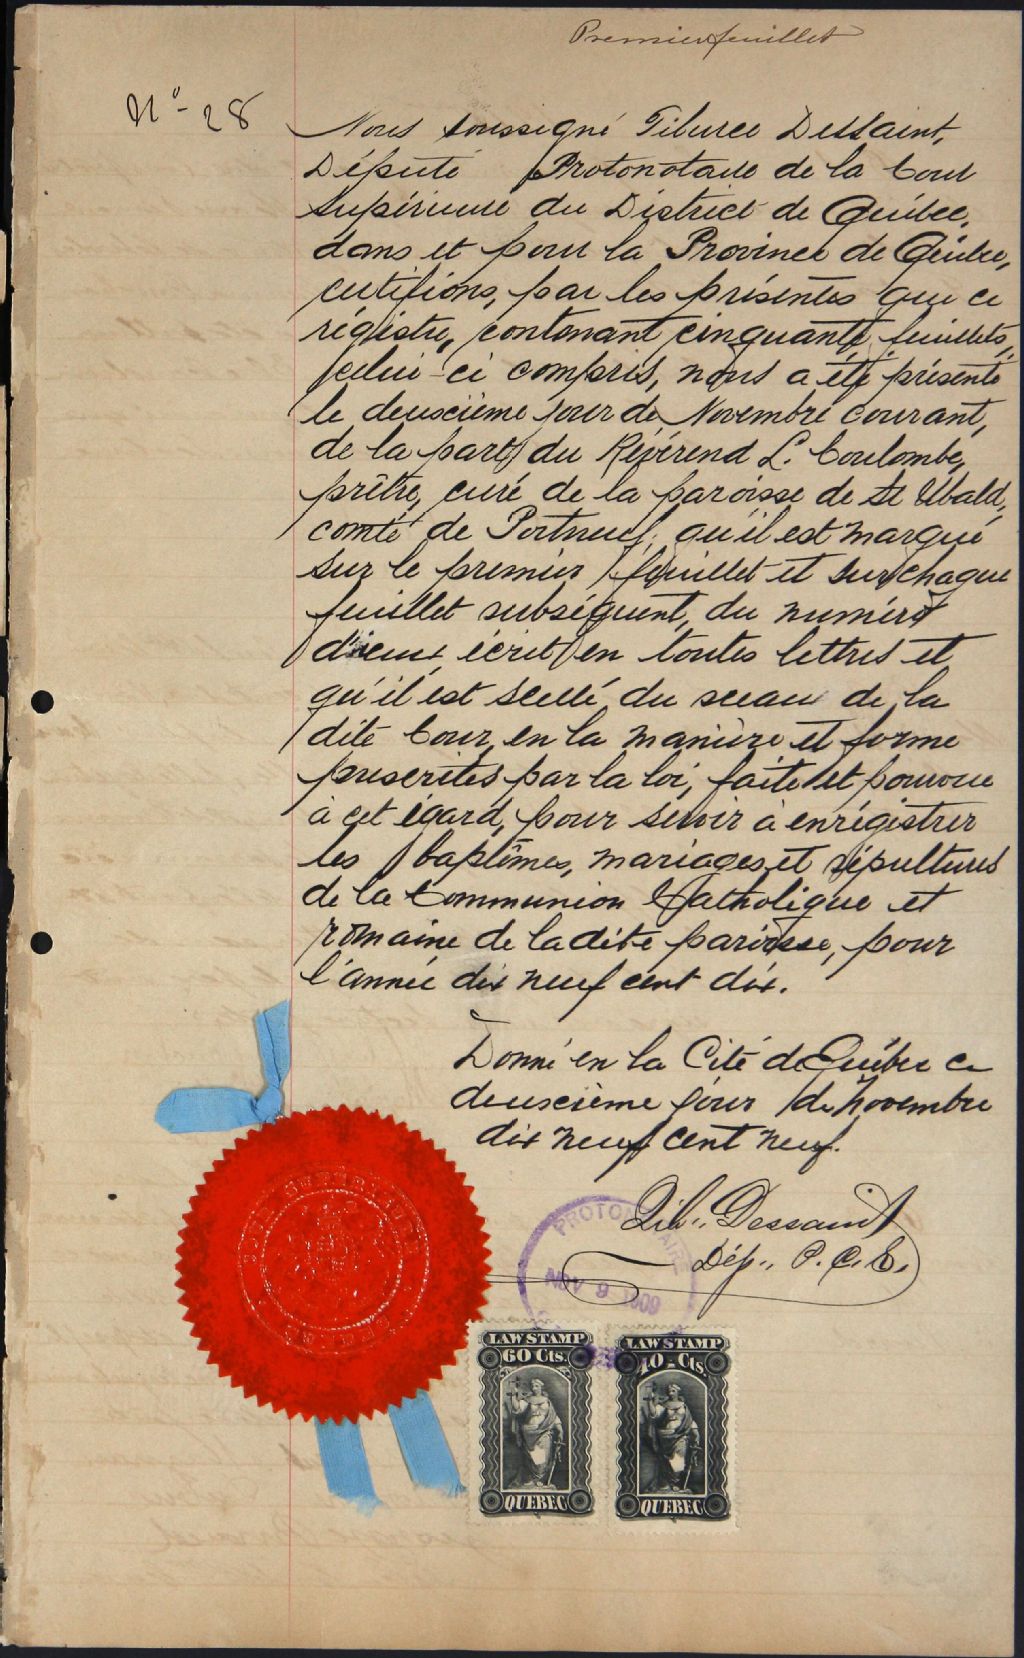 Premier feuillet
No- 28
Nous soussigné Tiburce Dessaint,
Député Protonotaire de la Cour
Supérieure du District de Québec,
dans et pour la Province de Québec,
certifions, par les présentes que ce
régistre, contenant cinquante feuillets,
celui-ci compris, nous a été présenté
le deuxième jour de Novembre courant,
de la part du Révérend L. Coulombe,
prêtre, curé de la paroisse de St Ubald,
comté de Portneuf, qu'il est marqué
sur le premier feuillet et sur chaque
feuillet subséquent, du numéro
d'iceux écrit en toutes lettres et
qu'il est scellé du sceau de la
dite Cour, en la manière et forme
prescrites par la loi, faite et pourvue
à cet égard, pour servir à enrégistrer
les baptêmes, mariages et sépultures
de la Communion Catholique et
romaine de la dite paroisse, pour
l'année dix neuf cent dix.
Donné en la Cité de Québec ce
deuxième jour de Novembre
dix neuf cent neuf.
Tib. Dessaint
Dép. P.C.S.
NOV 9 1909
LAW STAMP
60 Cts.
QUEBEC
LAW STAMP
10 Cts.
QUEBEC